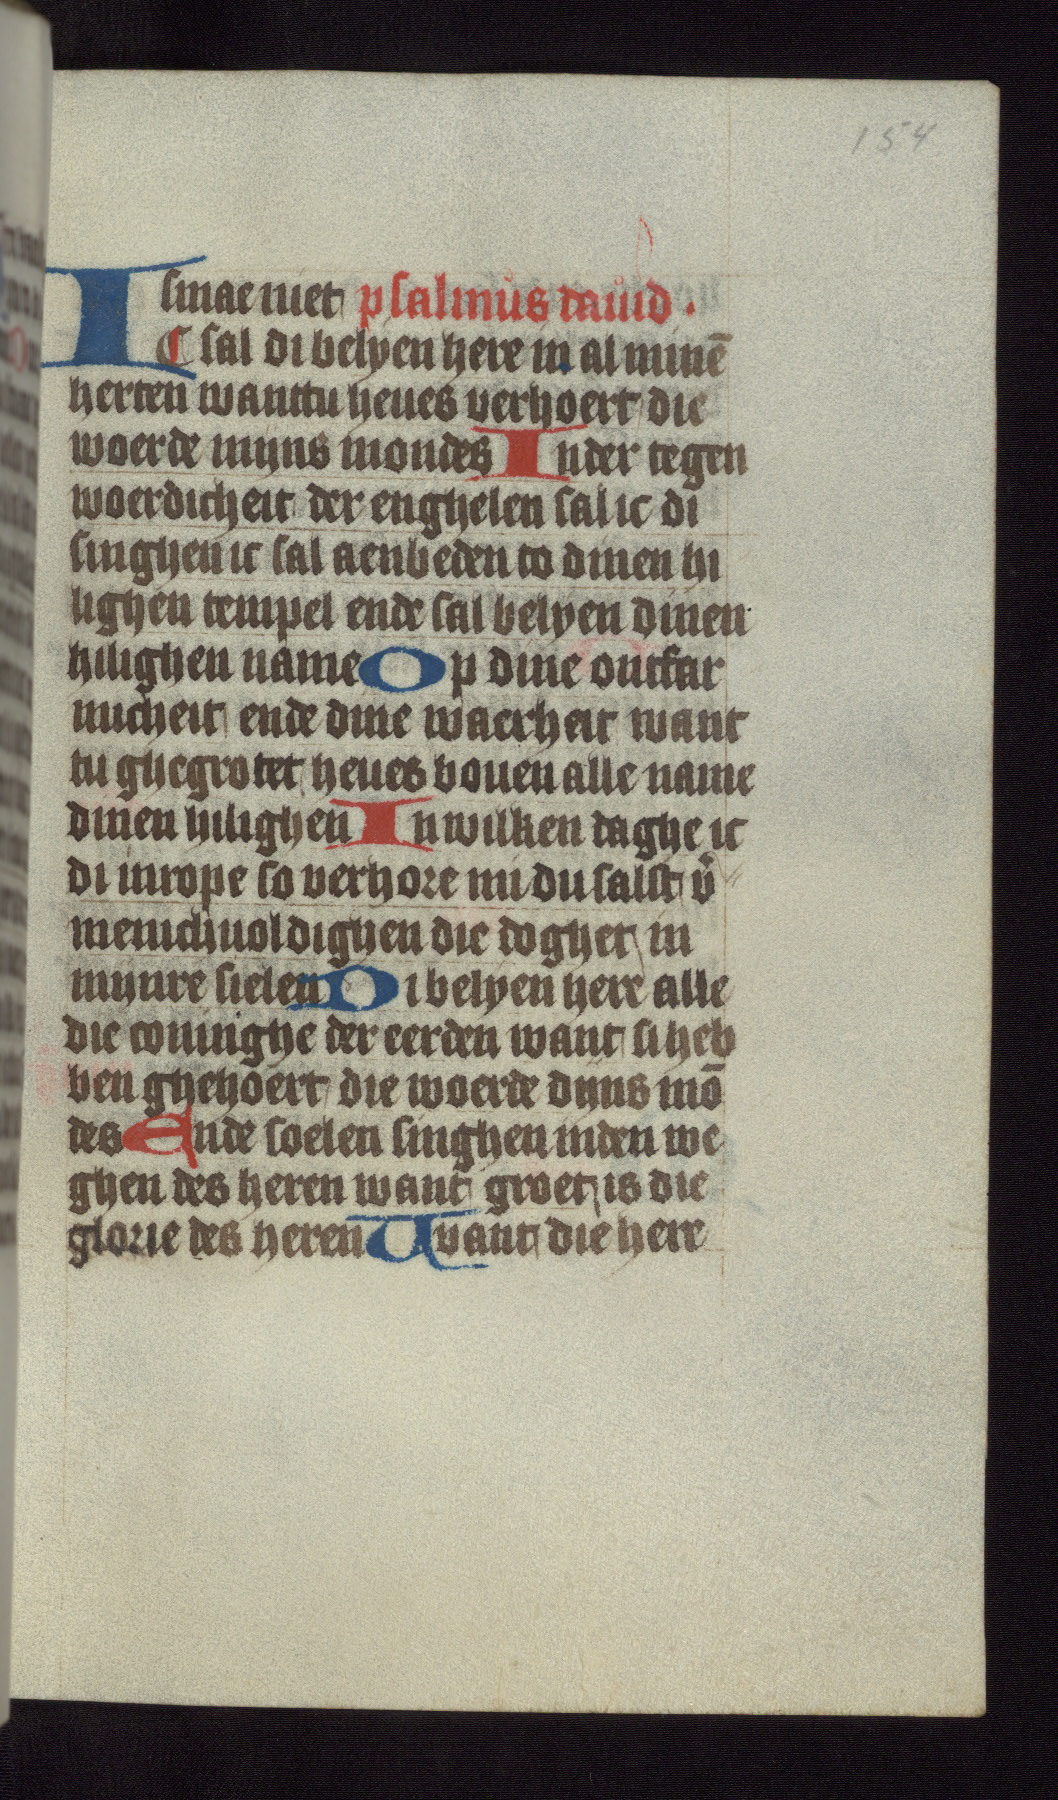 154
smae niet psalmus dauid.
IC sal di belyen here in al minē
herten wanttu heues verhoert die
woerde mijns mondes Inder tegen
woerdicheit der enghelen sal ic di
singhen ic sal aenbeden to dinen hi
lighen tempel ende sal belyen dinen
hilighen name Op dine ontfar
micheit ende dine waerheit want
tu ghegrotet heues bouen alle name
dinen hilighen In wilken daghe ic
di inrope so verhore mi du salst v̄
menichuoldighen die dogher in
mynre sielen Di belyen here alle
die coninghe der eerden want si heb
ben ghehoert die woerde dijns mō
des Ende soelen singhen inden we
ghen des heren want groet is die
glorie des heren Want die here